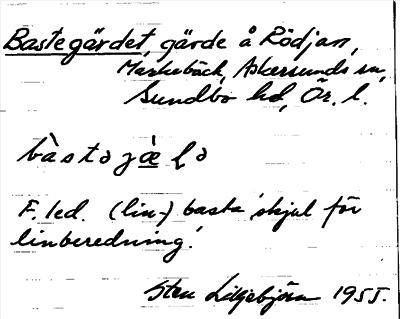 Bastegärdet, gärde å Rödjan,
Markebäck, Askersunds sn,
Sundbo hd, Ör. l.
F. led. (lin-) basta 'skjul för
linberedning'.
Sten Liljebjörn 1955.